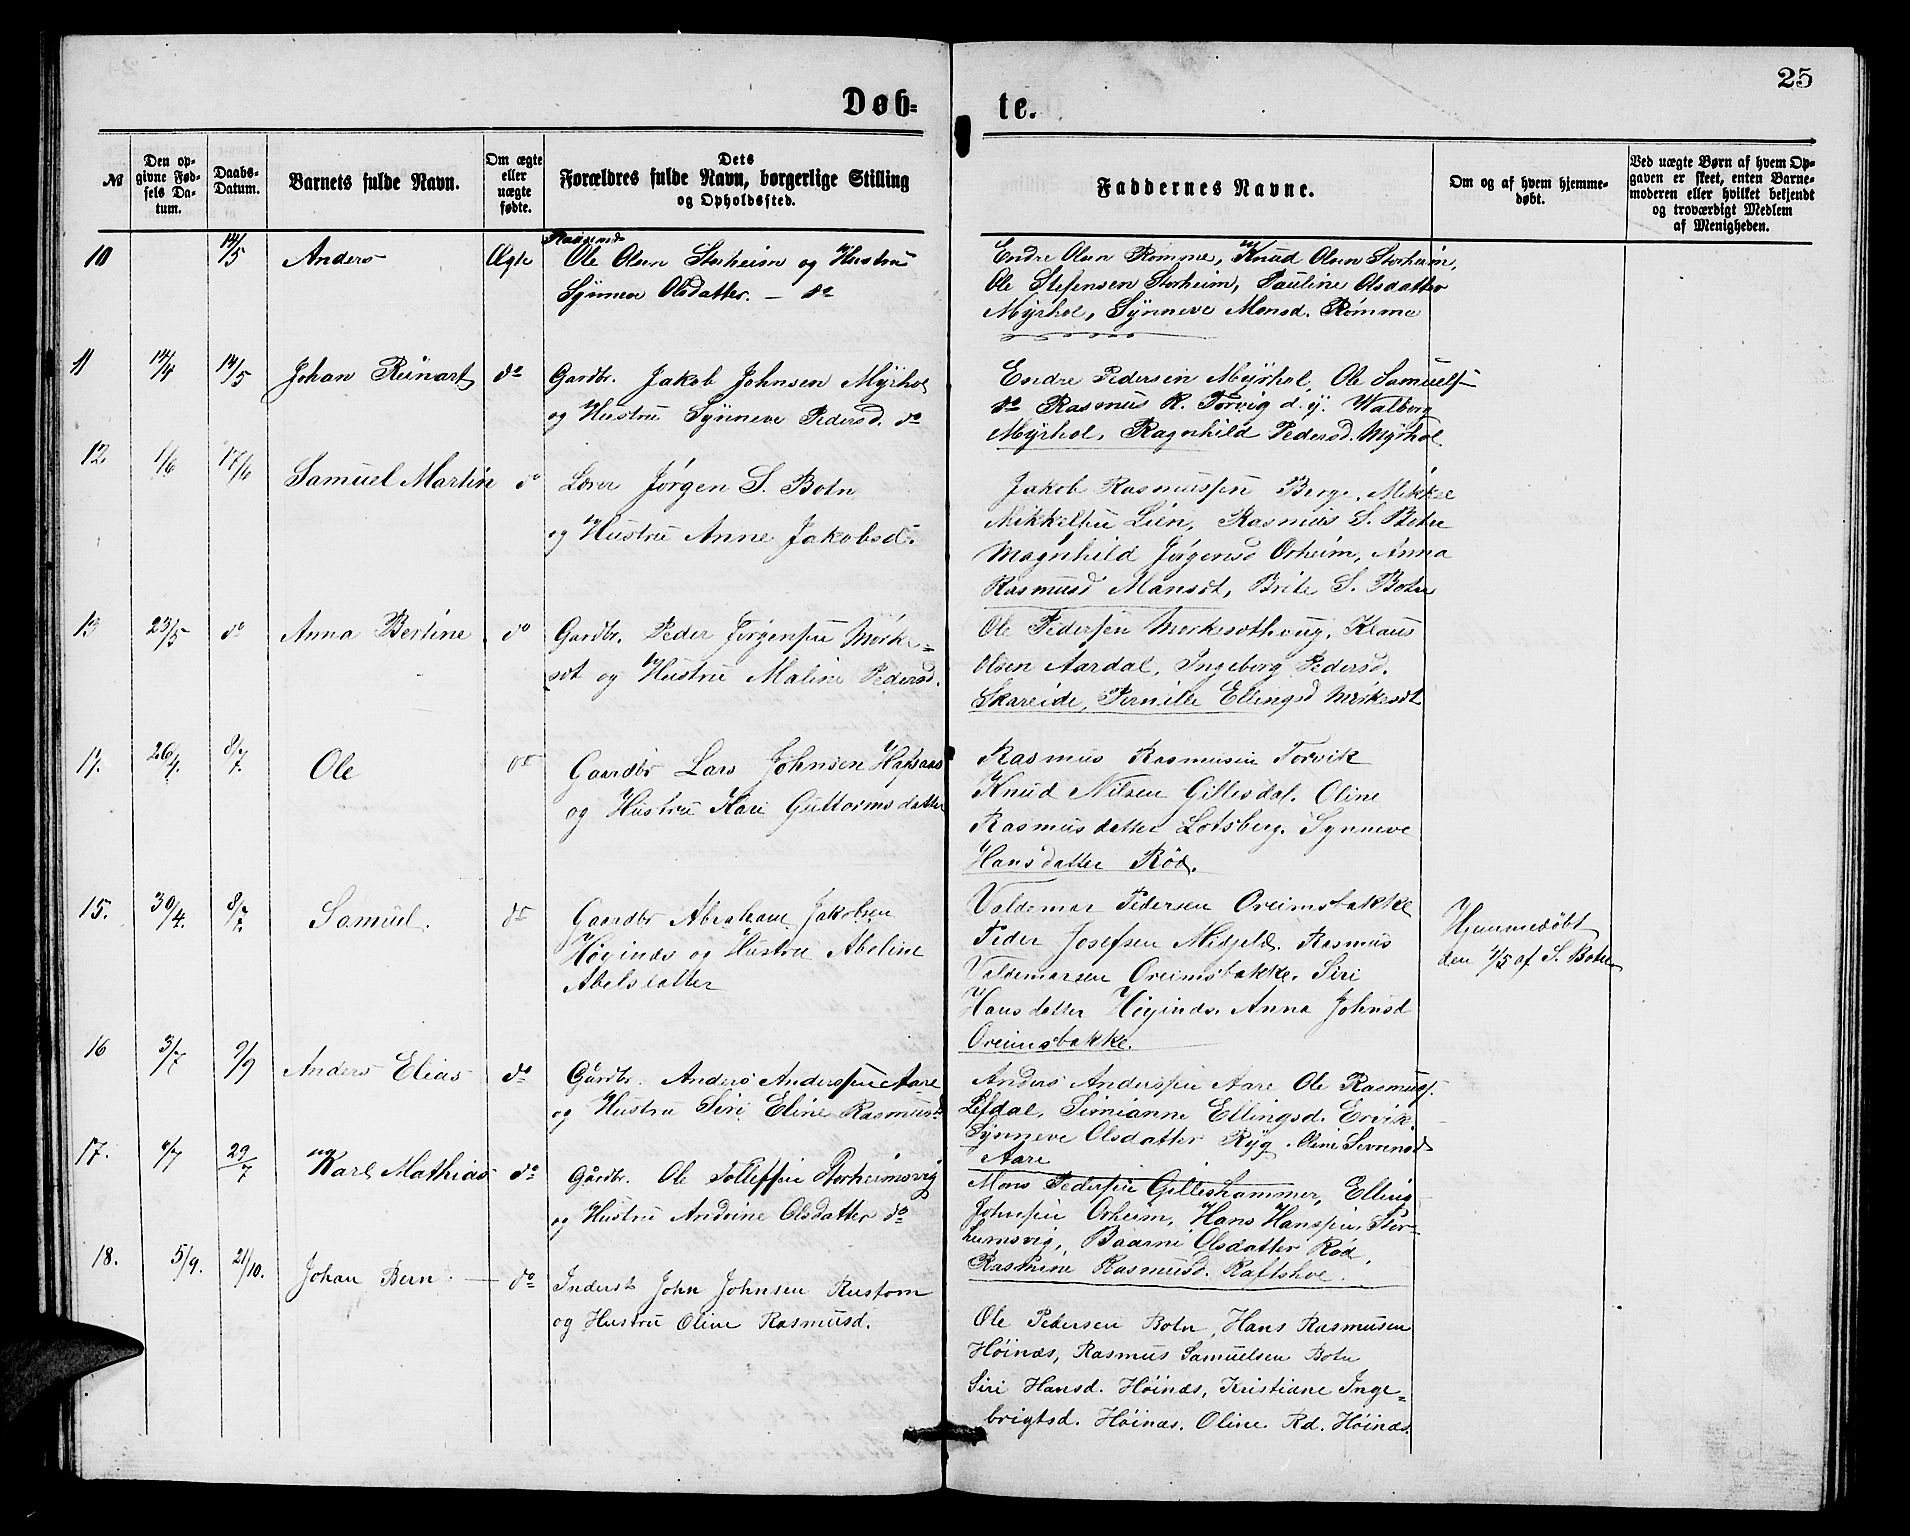 25
Døb-
te.
№
Den opgivne Fødsels Datum.
Daabs-Datum.
Barnets fulde Navn.
Om ægte eller uægte fødte.
Dets Forældres fulde Navn, borgerlige Stilling og Opholdssted.
Faddernes Navne.
Om og af hvem hjemmedøbt.
Ved uægte Børn af hvem Opgaven er skeet, enten Barnemoderen eller hvilket bekjendt og troværdigt Medlem af Menigheden.
10 14/5 Anders Ægte
Ole Olsen Storheim og Hustru
Synneve Olsdatter. – do
Endre Olsen Rømme, Knud Olsen Storheim,
Ole Stefensen Storheim, Pauline Olsdatter
Myrhol, Synneve Monsd. Rømme
11 14/4 14/5 Johan Reinart do
Gardbr. Jakob Johnsen Myrhol
og Hustru Synneve Pedersd. do
Endre Pedersen Myrhol, Ole Samuels-
do Rasmus R. Torvig d. y. Walborg
Myrhol, Ragnhild Pedersd. Myrhol.
12. 1/6 17/6 Samuel Martin do
Lærer Jørgen S. Botn
og Hustru Anne Jakobsd.
Jakob Rasmussen Berge, Mikkel
Mikkelsen Lien, Rasmus S. Botn
Magnhild Jørgensd Orheim, Anna
Rasmusd Mansæt, Brite S. Botn
13 23/5 do Anna Bertine do
Gardbr. Peder Jørgensen Mørke-
sæt og Hustru Maline Pedersd.
Ole Pedersen Mørkesæthoug, Klaus
Olsen Aardal, Ingeborg Pedersd.
Skareide, Pernille Ellingsd Mørkesæt
14. 26/4. 8/7. Ole do
Gaardbr Lars Johnsen
og Hustru Kari Guttormsdatter
Rasmus Rasmusen Torvik
Knud Nilsen Gillesdal. Oline
Rasmusdatter Lotsberg. Synneve
Hansdatter Rød.
15. 30/4. 8/7. Samuel. do
Gaardbr Abraham Jakobsen
Høginds og Hustru Abeline
Abelsdatter
Valdemar Pedersen Oreimsbakke
Peder Josefsen Midjeld. Rasmus
Valdemarsen Oreimsbakke. Siri
Hansdatter Høginds. Anna Johnsd
Oreimsbakke.
Hjemmedøbt
den 1/5 af S. Botn
16 3/7 9/9 Anders Elias do
Gårdbr. Anders Andersen Aare
og Hustru Siri Eline Rasmusd.
Anders Andersen Aare Ole Rasmuss.
Lefdal, Simianne Ellingsd. Ervik
Synneve Olsdatter Ryg. Oline Severinsd
Aare
17. 4/7 29/7 Karl Mathias do
Gårdbr. Ole Tollefsen Storheimsvig
og Hustru Andrine Olsdatter do
Mons Pedersen Gilleshammer, Elling
Johnsen Orheim, Hans Hansen Stor-
heimsvig, Olsdatter Rød,
Rasmine Rasmusd. Raftshol.
18. 5/9. 21/10. Johan Bern. – do
Inderst John Johnsen Rustom
og Hustru Oline Rasmusd.
Ole Pedersen Botn, Hans Rasmusen
Høinæs, Rasmus Samuelsen Botn
Siri Hansd. Høinæs, Kristiane Inge-
brigtsd. Høinæs. Oline Rd. Høinæs.